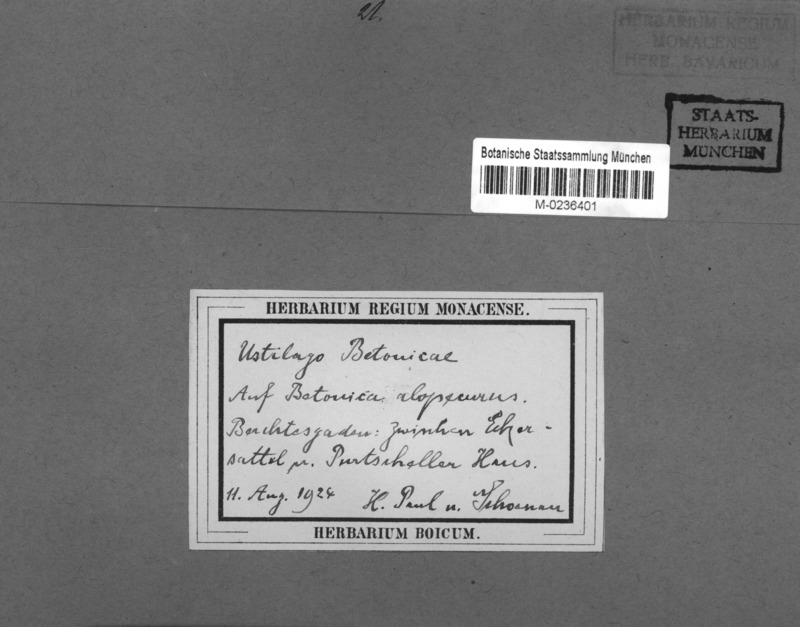 21.
HERBARIUM REGIUM
MONACENSE
HERB. BAVARICUM
STAATS-
HERBARIUM
MÜNCHEN
Botanische Staatssammlung München
M-0236401
HERBARIUM REGIUM MONACENSE.
Ustilago Betonicae
Auf Betonica alopecurus.
Berchtesgaden: zwischen Ecker-
sattel u. Purtscheller Haus.
11. Aug. 1924 H. Paul u. Schoenau
HERBARIUM BOICUM.